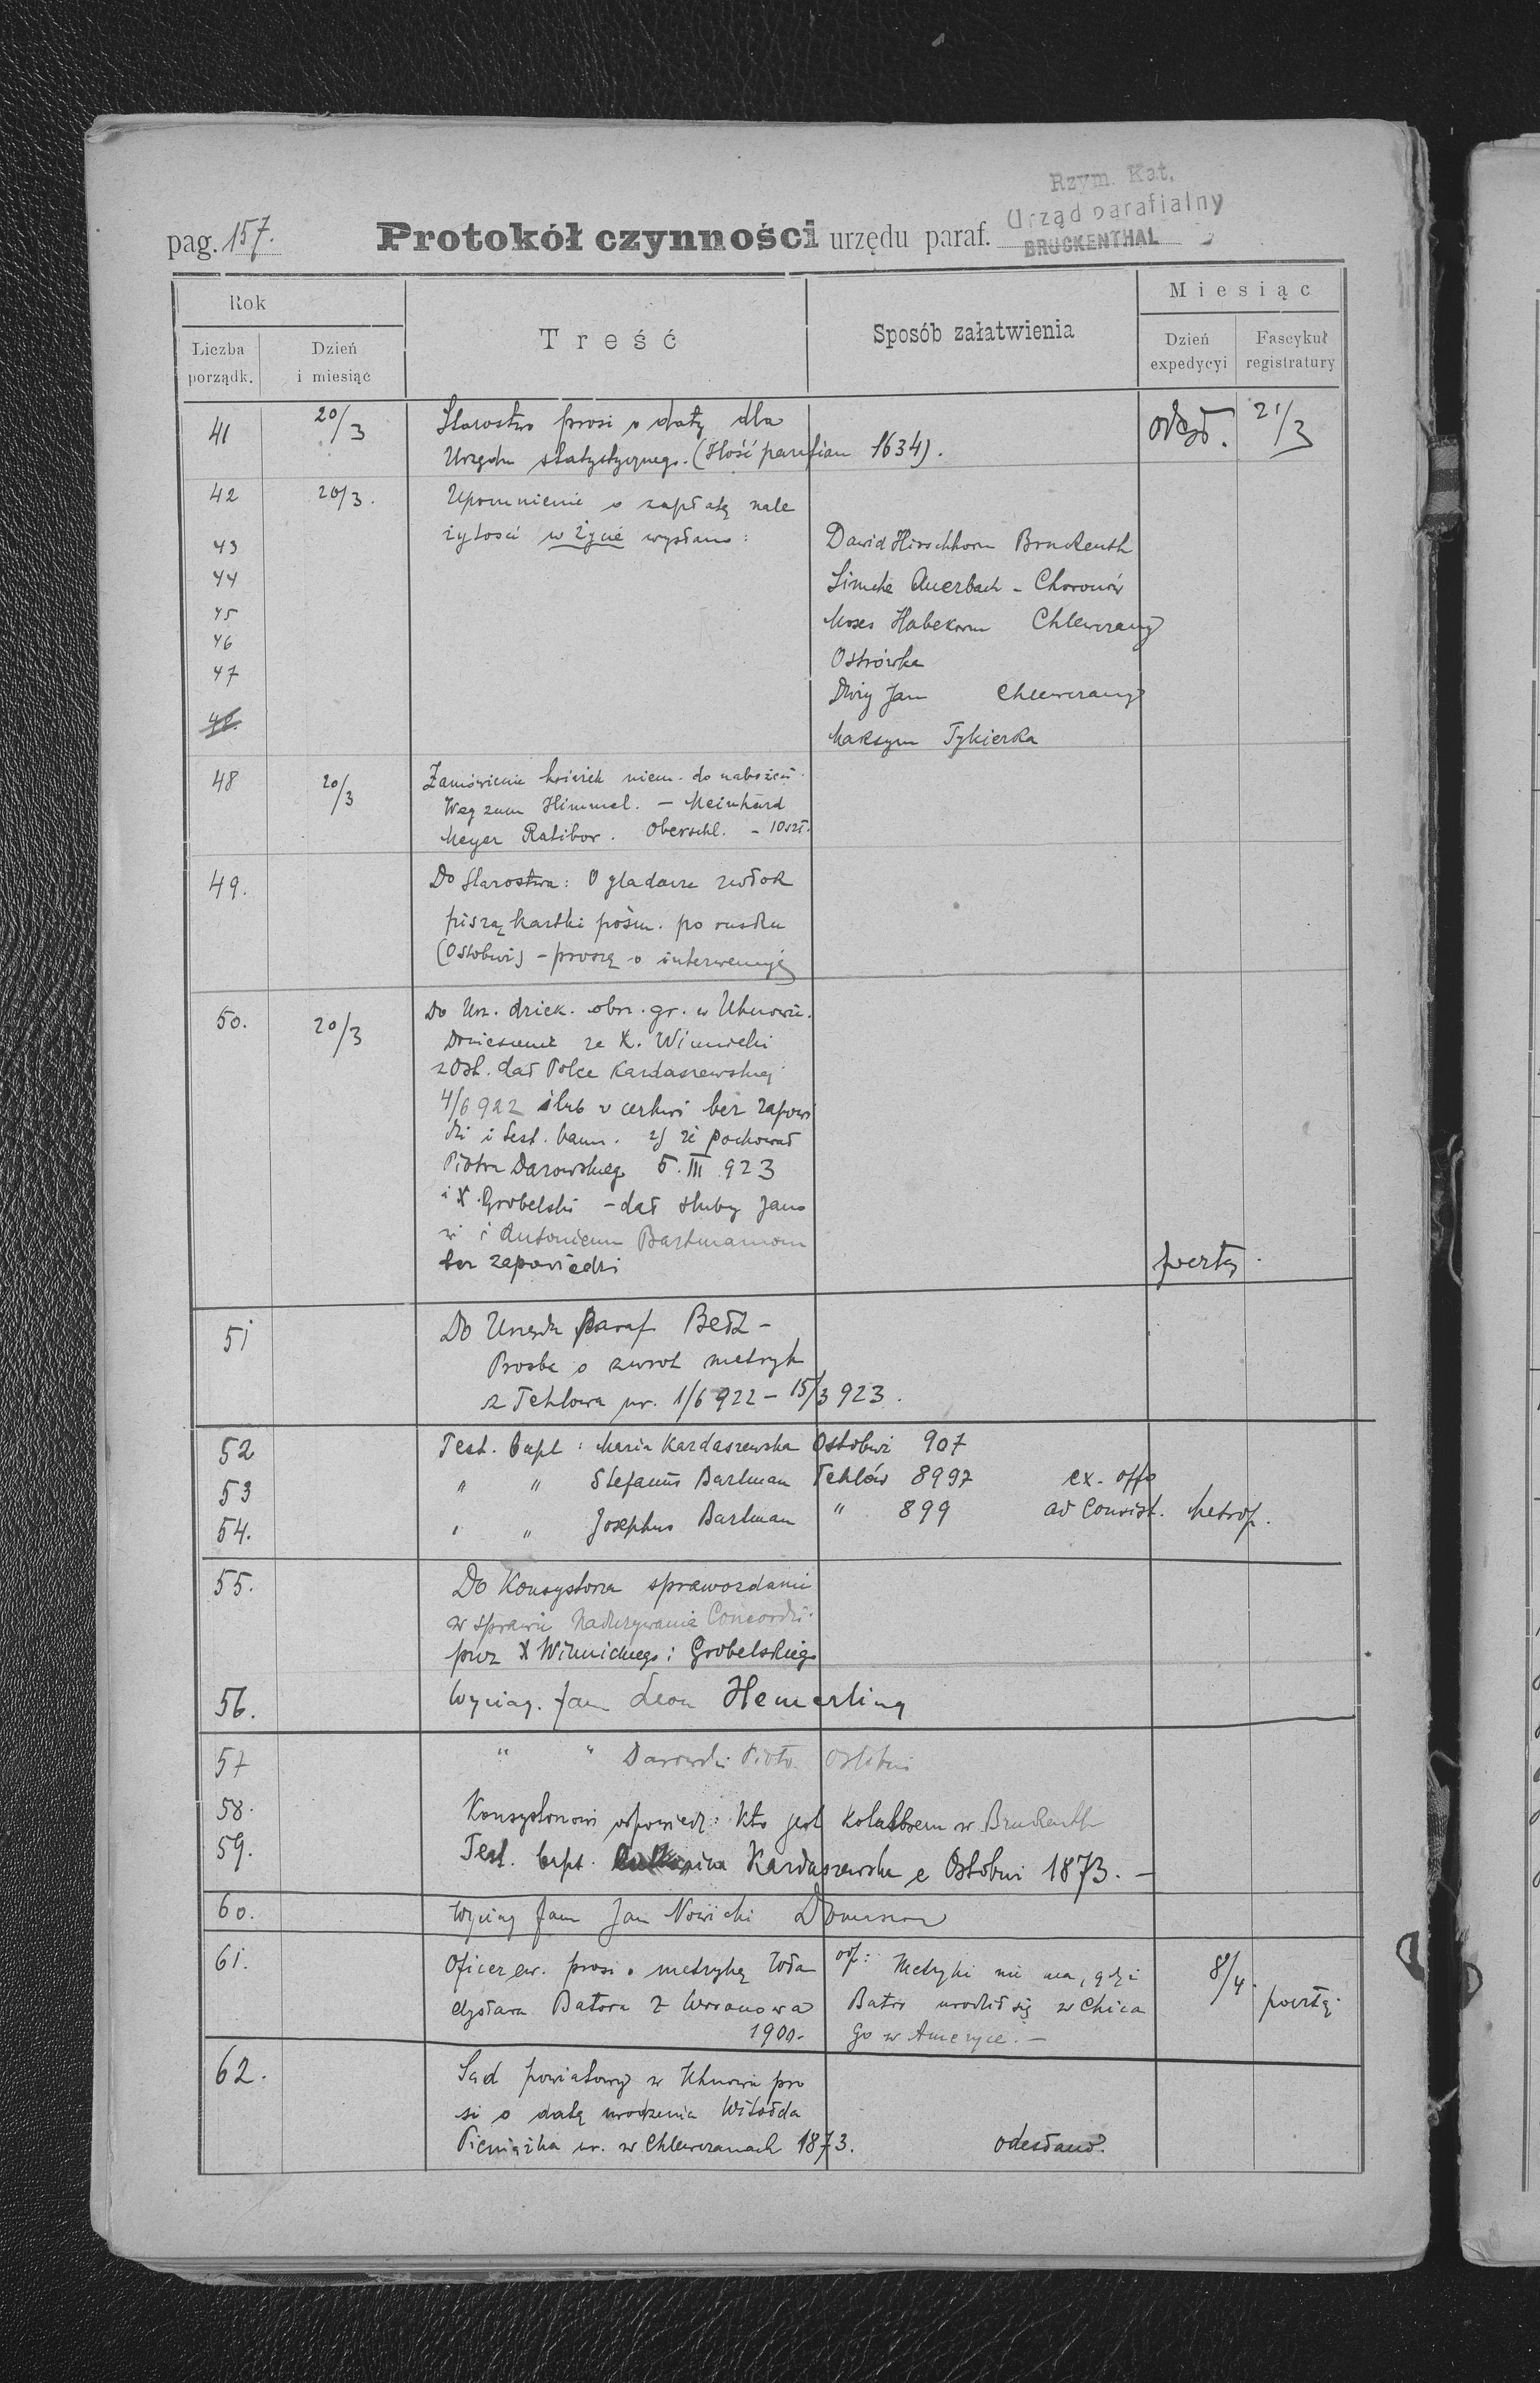 Rzym. Kat.
Urząd parafialny
BRUCKENTHAL
pag. 157.
Protokół czynności urzędu paraf.
Rok
Miesiąc
Liczba porządk.
Dzień i miesiąc
Treść
Sposób załatwienia
Dzień expedycyi
Fascykuł registratury
41 20/3 Starostwo prosi o daty dla odesł. 21/3
Urzędu statystycznego. (Ilość parafian 1634).
42 20/3. Upomnienie o zapłatę nale
żytości w życie wysłano:
43 Dawid Hirschhorn Bruckenth
44 Simche Auerbach - Choronów
45 Moses Habekorn Chlewczany
46 Ostrówka
47 Jan Chlewczany
48. Maksym Tykierka
48 20/3 Zamówienie książek niem. do nabożeń.
Weg zum Himmel. - Meinhard
Meyer Ratibor. Oberschl. - 10 szt.
49. Do Starostwa: Oglądacze zwłok
piszą kartki pośm. po rusku
(Ostobuż) - proszę o interwencyę
50. 20/3 Do Urz. dziek. obrz. gr. w Uhnowie.
Doniesienie że X. Winnicki
z Ost. dał Polce Kardaszewskiej
4/6 922 ślub w cerkwi bez zapowie
dzi i test. bann. 2) że pochował
Piotra Darowskiego 5. III 923
i X. Grobelski - dał śluby Jano
wi i Antoniemu Bartmanom
bez zapowiedzi pocztą.
51 Do Urzędu Paraf Bełz -
Prośba o zwrot metryk
z Tehlowa ur. 1/6 922 - 15/3 923.
52 Test. bapt: Maria Kardaszewska Ostobuż 907
53 " " Stefanus Bartman Tehlów 8997 ex. offo
54. " " Josephus Bartman " 899 ad Consist. Metrop.
55. Do Konsystorza sprawozdanie
w sprawie Concordii
przez X Winnickiego i Grobelskiego
56. Wyciąg. fam Leon Hemerling
57 " " Darowski Piotr. Ostobuż
58. Konsystorzowi odpowiedź: kto jest kolatorem w Bruckenth
59. Test. bapt. Kardaszewska e Ostobuż 1873. -
60. Wyciąg fam Jan Nowicki
61. Oficer ew. prosi o metrykę Wła
dysława Batora z Werchanowa
1900.
odp: Metryki nie ma, gdyż
Bator urodził się w Chica
go w Ameryce. -
8/4. pocztą.
62. Sąd powiatowy w Uhnowie pro
si o datę urodzenia Witolda
Pieniążka ur. w Chlewczanach 1873. odesłano.